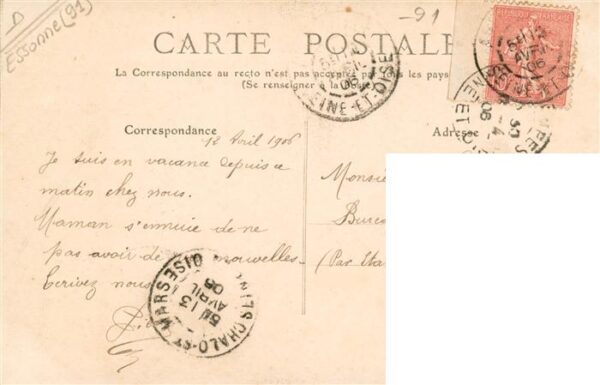 D
Essonne (91)
-91
CARTE POSTALE
La Correspondance au recto n'est pas acceptée par tous les pays
(Se renseigner à la Poste)
Correspondance
Adresse
12 Avril 1906
Je suis en vacance depuis ce
matin chez nous.
Maman s'ennuie de ne
pas avoir de nouvelles.
Ecrivez nous
Monsie
Bure
(Par Eta
SEINE-ET-OISE
AVRIL
06
CHALO-ST-MARS
13
AVRIL
06